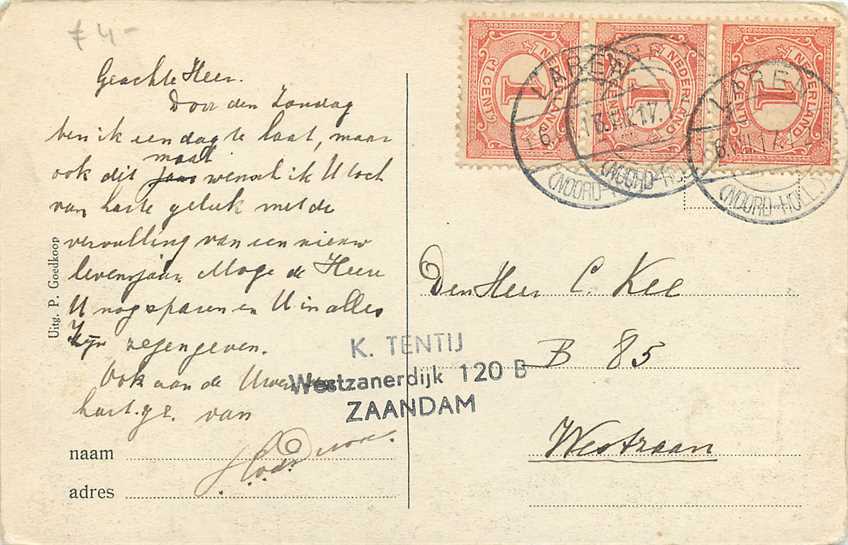 f 4-
Geachte Heer.
Door den Zondag
ben ik een dag te laat, maar
ook dit maal wensch ik U toch
van harte geluk met de
vervulling van een nieuw
levensjaar. Moge de Heere
U nog sparen en U in alles
Zijn zegen geven.
Ook aan de Uwen
hart. gr. van
naam
adres
Uitg. P. Goedkoop
K. TENTIJ
Westzanerdijk 120 B
ZAANDAM
1 CENT 1 NEDERLAND
1 CENT 1 NEDERLAND
1 CENT 1 NEDERLAND
LAREN
(NOORD-
LAREN
(NOORD-HOLL.)
Den Heer C. Kee
B 85
Westzaan